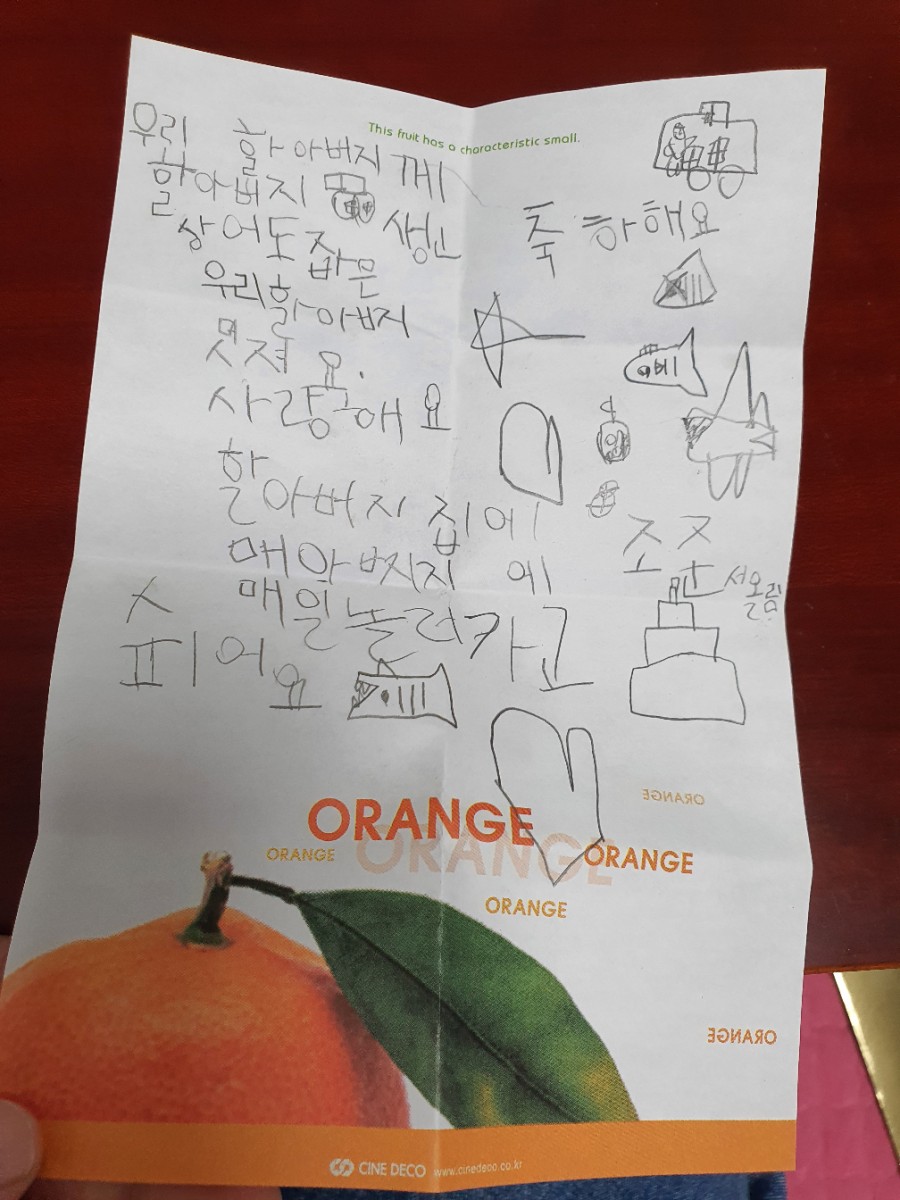 This fruit has a characteristic small.
우리 할아버지께
할아버지 생신 축하해요
상어도 잡은
우리 할아버지
멋져요.
사랑해요
할아버지 집에
매일 놀러가고
피어요
조준서올림
ORANGE
ORANGE
ORANGE
ORANGE
ORANGE
ORANGE
ORANGE
CINE DECO www.cinedeco.co.kr